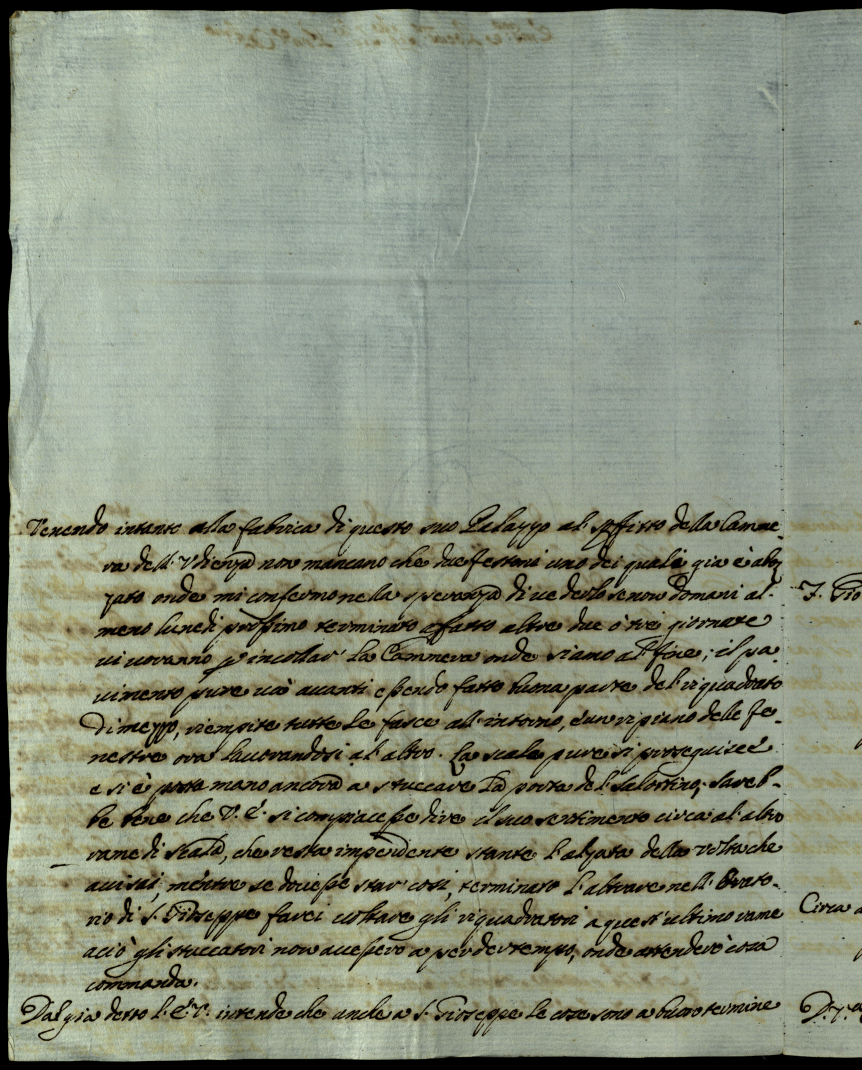 Venendo intanto alla fabrica di questo suo Palazzo al soffitto della Came-
ra dell'Vdienza non mancano che due festoni uno dei quali gia è aboz-
zato onde mi confermo nella speranza di vederlo se non domani al-
meno lunedì prossimo terminato affatto altre due ò trei giornate
vi voranno p incollar' la Cammera onde siamo al fine; il pa-
vimento pure và avanti essendo fatto buona parte del riquadrato
di mezzo, riempite tutte le fasce all'intorno, è un ripiano delle fe-
nestre ora lavorandosi al altro. La scala pure si proseguisce
e si è posta mano ancora a stuccare la porta del Salottino; sareb-
be bene che V. E. si compiacesse dire il suo sentimento circa al altro
rame di Scala, che resta impendente stante l'alzata della volta che
avisai, mentre se dovesse star' cosi, terminato l'altare nell'Orato-
rio di S. Gioseppe farei voltare gli riquadratori a quest'ultimo rame
acciò gli stuccatori non avessero a perder tempo, onde attenderò cosa
commanda.
Dal gia detto l'E. V. intende che anche a S. Gioseppe le cose sono a buon termine
F. Gio
Circa a